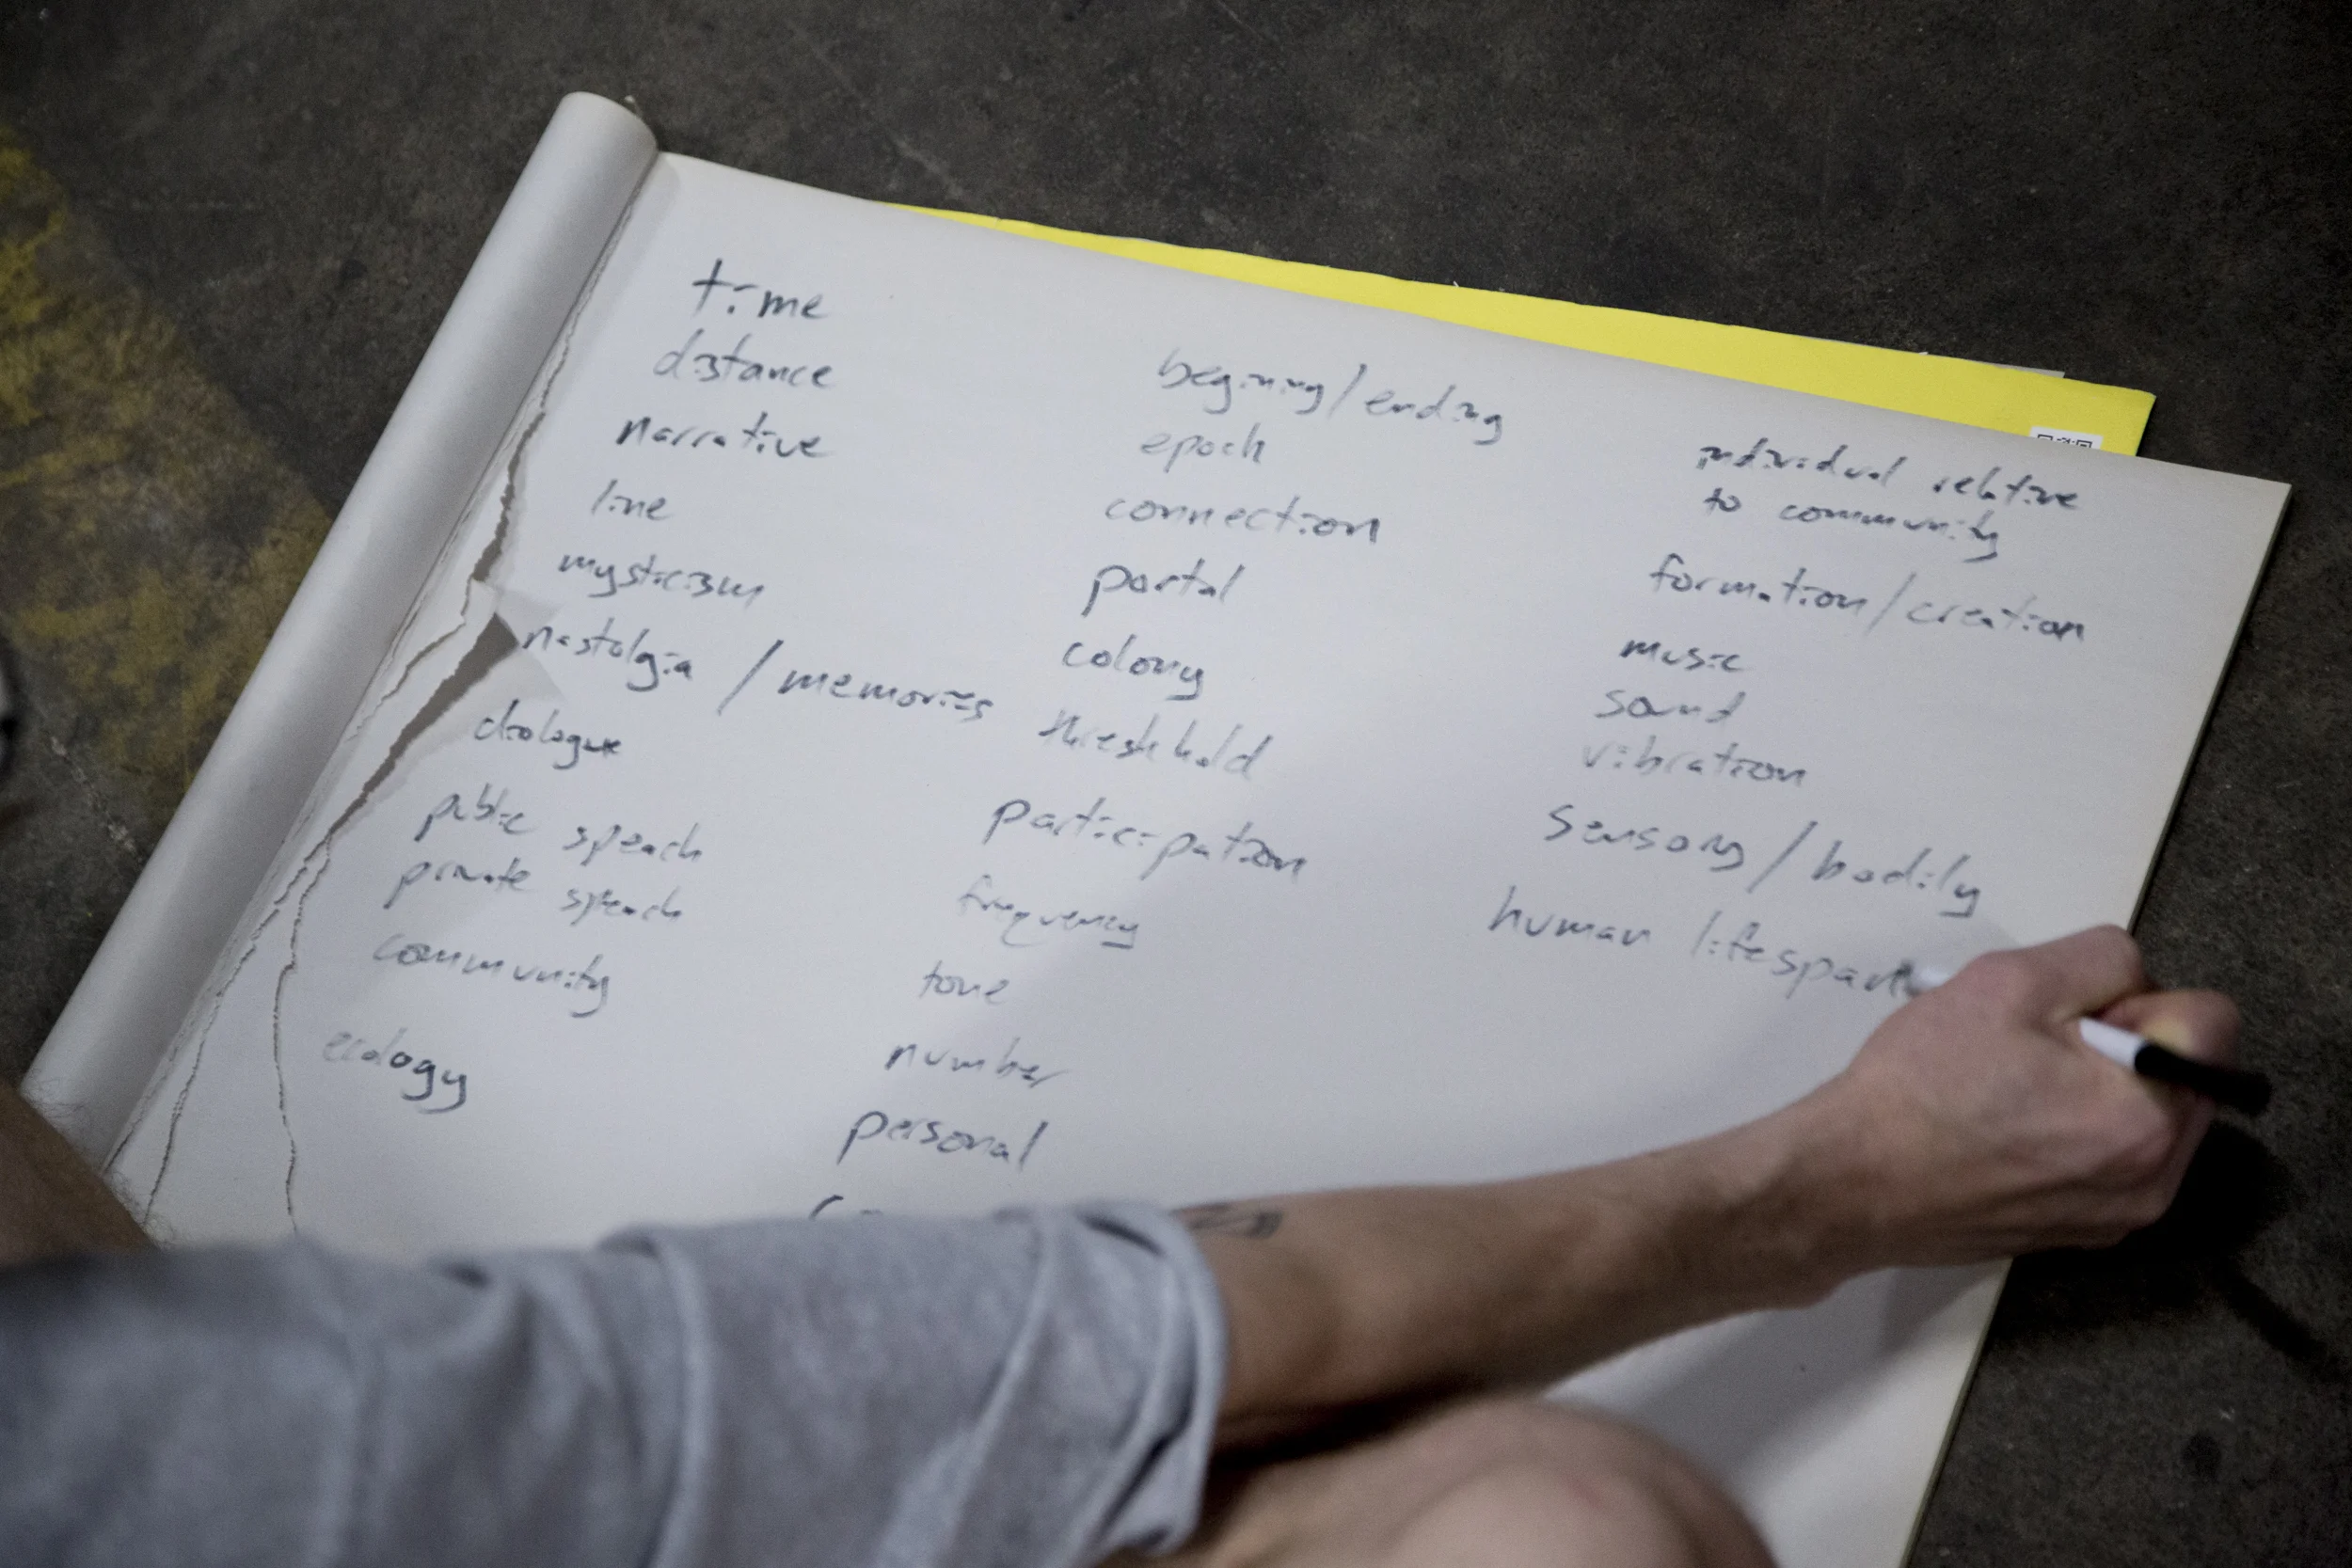 time
distance
narrative
line
mysticism
nastolgia / memories
dialogue
public speach
private speach
community
ecology
begining/ending
epoch
connection
portal
colony
threshhold
participation
frequency
tone
number
personal
individual relative
to community
formation/creation
music
sound
vibration
sensory/bodily
human lifespan